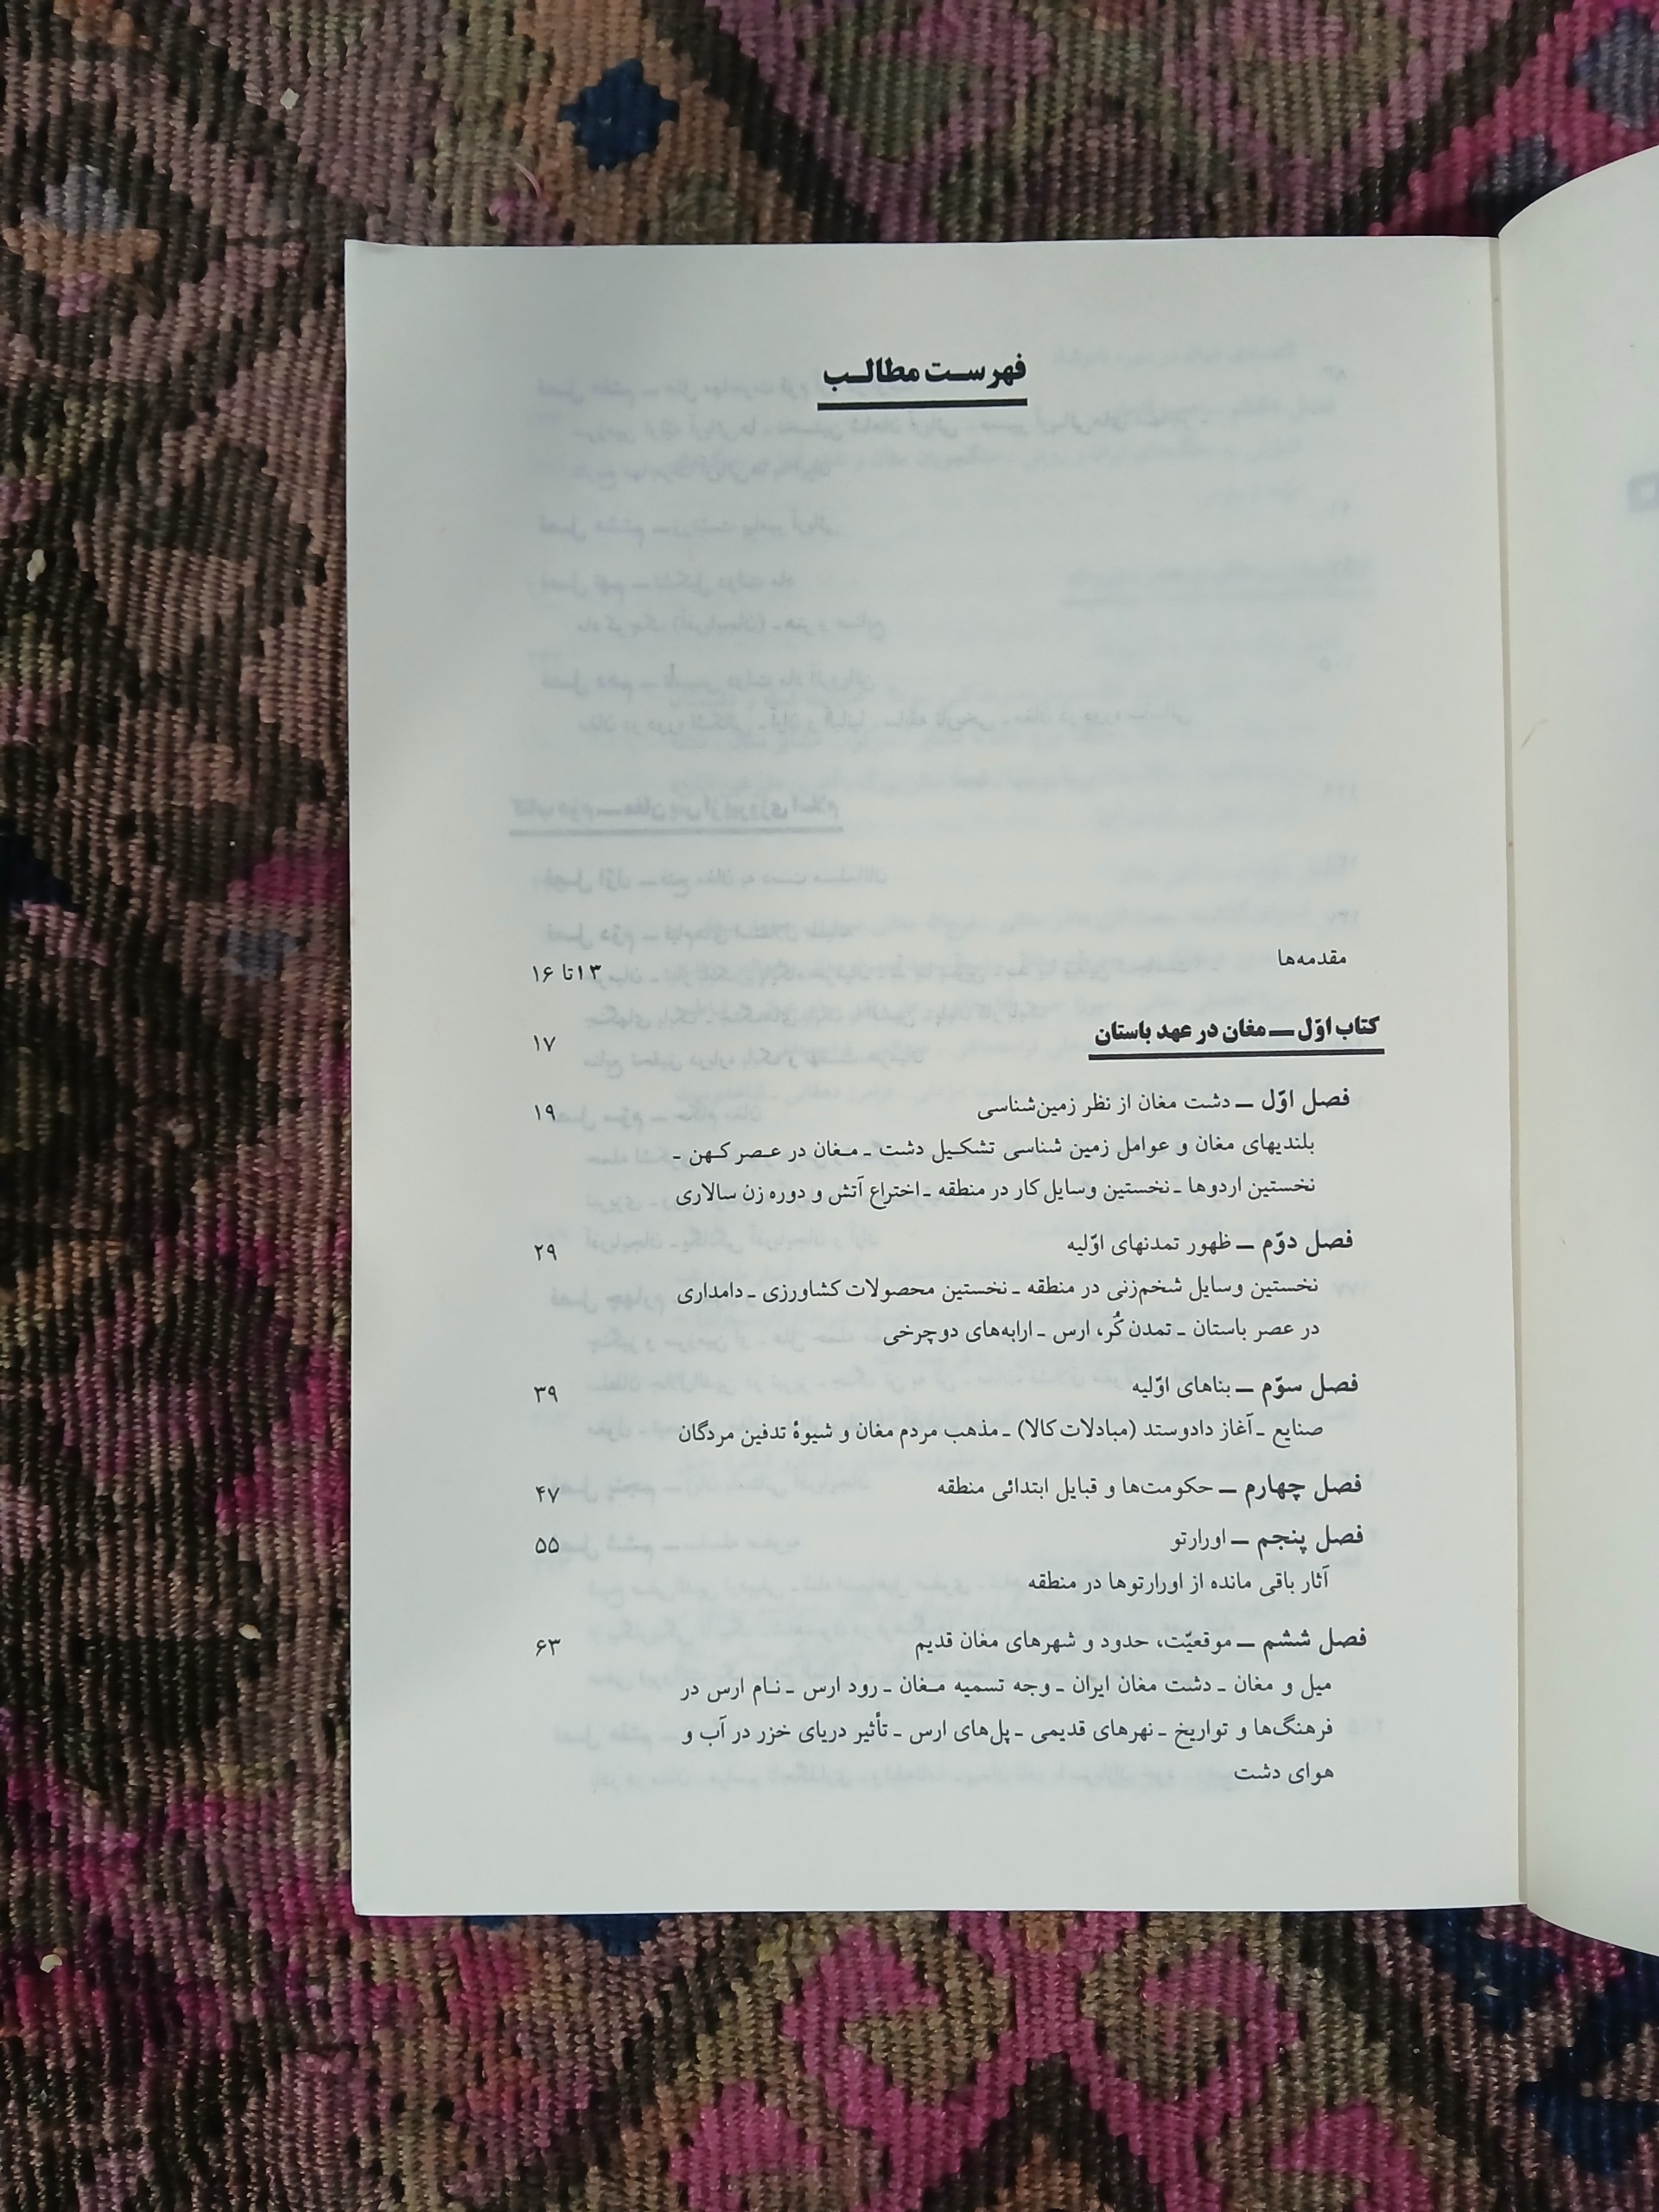 فهرست مطالب
مقدمه‌ها ۱۳ تا ۱۶
کتاب اوّل ــ مغان در عهد باستان ۱۷
فصل اوّل ــ دشت مغان از نظر زمین‌شناسی ۱۹
بلندیهای مغان و عوامل زمین شناسی تشکیل دشت ـ مغان در عصر کهن ـ
نخستین اردوها ـ نخستین وسایل کار در منطقه ـ اختراع آتش و دوره زن سالاری
فصل دوّم ــ ظهور تمدنهای اوّلیه ۲۹
نخستین وسایل شخم‌زنی در منطقه ـ نخستین محصولات کشاورزی ـ دامداری
در عصر باستان ـ تمدن کُر، ارس ـ ارابه‌های دوچرخی
فصل سوّم ــ بناهای اوّلیه ۳۹
صنایع ـ آغاز دادوستد (مبادلات کالا) ـ مذهب مردم مغان و شیوهٔ تدفین مردگان
فصل چهارم ــ حکومت‌ها و قبایل ابتدائی منطقه ۴۷
فصل پنجم ــ اورارتو ۵۵
آثار باقی مانده از اورارتوها در منطقه
فصل ششم ــ موقعیّت، حدود و شهرهای مغان قدیم ۶۳
میل و مغان ـ دشت مغان ایران ـ وجه تسمیه مغان ـ رود ارس ـ نام ارس در
فرهنگ‌ها و تواریخ ـ نهرهای قدیمی ـ پل‌های ارس ـ تأثیر دریای خزر در آب و
هوای دشت